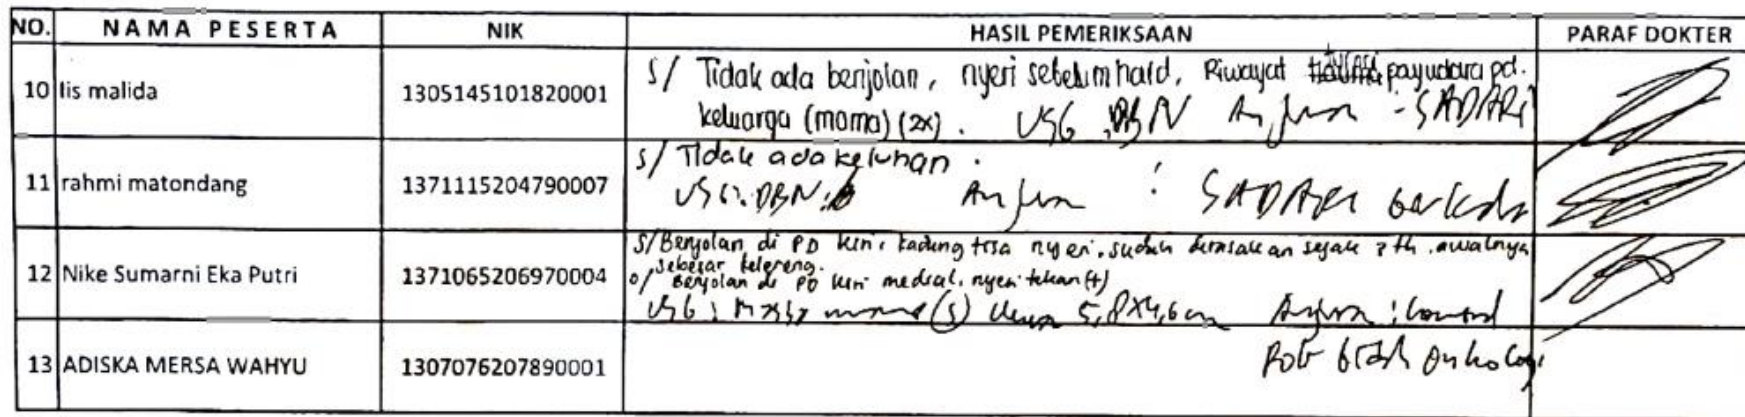 NO. NAMA PESERTA NIK HASIL PEMERIKSAAN PARAF DOKTER
10 Iis malida 1305145101820001 S/ Tidak ada benjolan, nyeri sebelum haid, Riwayat payudara pd.
keluarga (mama) (2x). USG : DBN Anjuran : SADARI
11 rahmi matondang 1371115204790007 S/ Tidak ada keluhan.
USG : DBN Anjuran : SADARI berkala
12 Nike Sumarni Eka Putri 1371065206970004 S/ Benjolan di PD kiri, kadang nyeri, sudah dirasakan sejak th. awalnya
sebesar kelereng.
o/ Benjolan di PD kiri medial, nyeri tekan (+)
USG : mamma (S) 5,8x4,6 cm Anjuran : kontrol
13 ADISKA MERSA WAHYU 1307076207890001 Poli bedah onkologi